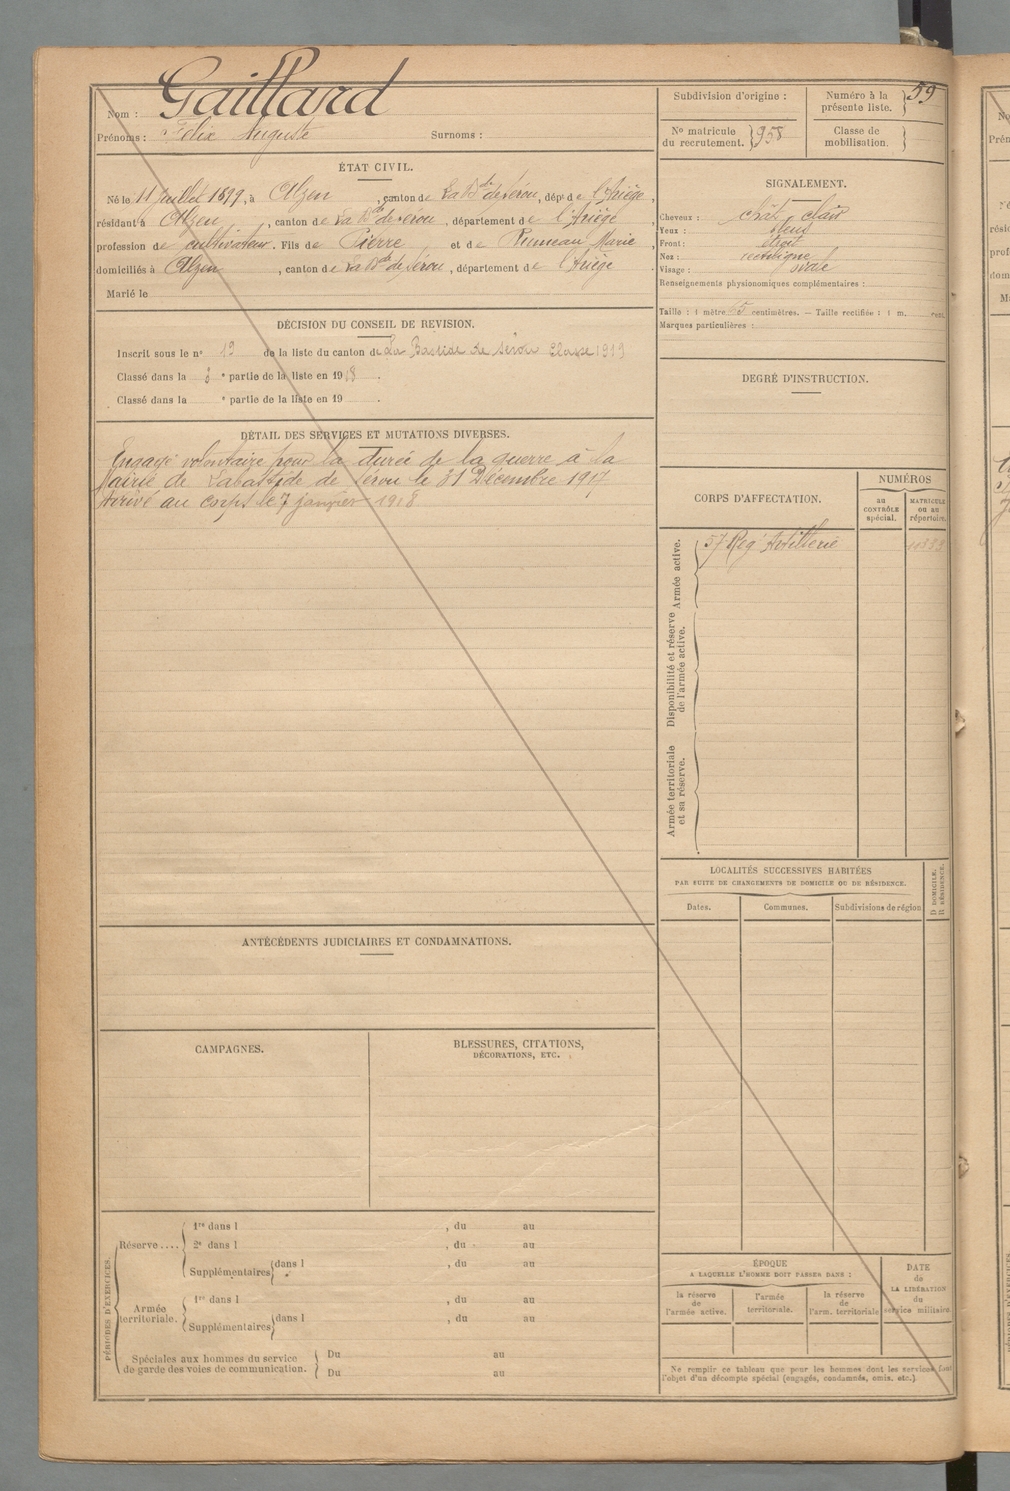 Nom : Gaillard
Prénoms : Félix Auguste Surnoms :
ÉTAT CIVIL.
Né le 11 Juillet 1899, à Alzen, canton de La Bde de Sérou, dépt de l'Ariège,
résidant à Alzen, canton de La Bde de Sérou, département de l'Ariège,
profession de cultivateur. Fils de Pierre et de Rumeau Marie,
domiciliés à Alzen, canton de La Bde de Sérou, département de l'Ariège.
Marié le
DÉCISION DU CONSEIL DE REVISION.
Inscrit sous le no 19 de la liste du canton de La Bastide de Sérou Classe 1919
Classé dans la e partie de la liste en 1918.
Classé dans la e partie de la liste en 19 .
DÉTAIL DES SERVICES ET MUTATIONS DIVERSES.
Engagé volontaire pour la durée de la guerre à la
Mairie de Labastide de Sérou le 31 Décembre 1917
Arrivé au corps le 7 janvier 1918
ANTÉCÉDENTS JUDICIAIRES ET CONDAMNATIONS.
CAMPAGNES.
BLESSURES, CITATIONS,
DÉCORATIONS, ETC.
PÉRIODES D'EXERCICES.
Réserve....
1re dans l , du au
2e dans l , du au
Supplémentaires dans l , du au
Armée
territoriale.
1re dans l , du au
Supplémentaires dans l , du au
Spéciales aux hommes du service
de garde des voies de communication.
Du au
Du au
Subdivision d'origine :
Numéro à la
présente liste. 59
No matricule
du recrutement. 958
Classe de
mobilisation.
SIGNALEMENT.
Cheveux : chât. clair
Yeux : bleus
Front : étroit
Nez : rectiligne
Visage : ovale
Renseignements physionomiques complémentaires :
Taille : 1 mètre 65 centimètres. — Taille rectifiée : 1 m.
Marques particulières :
DEGRÉ D'INSTRUCTION.
CORPS D'AFFECTATION.
NUMÉROS
au
CONTRÔLE
spécial.
MATRICULE
ou au
répertoire.
Armée active.
57 Regt Artillerie
Disponibilité et réserve
de l'armée active.
Armée territoriale
et sa réserve.
LOCALITÉS SUCCESSIVES HABITÉES
PAR SUITE DE CHANGEMENTS DE DOMICILE OU DE RÉSIDENCE.
Dates.
Communes.
Subdivisions de région
D DOMICILE.
R RÉSIDENCE.
ÉPOQUE
A LAQUELLE L'HOMME DOIT PASSER DANS :
la réserve
de
l'armée active.
l'armée
territoriale.
la réserve
de
l'arm. territoriale
DATE
de
LA LIBÉRATION
du
service militaire.
Ne remplir ce tableau que pour les hommes dont les services font
l'objet d'un décompte spécial (engagés, condamnés, omis, etc.).